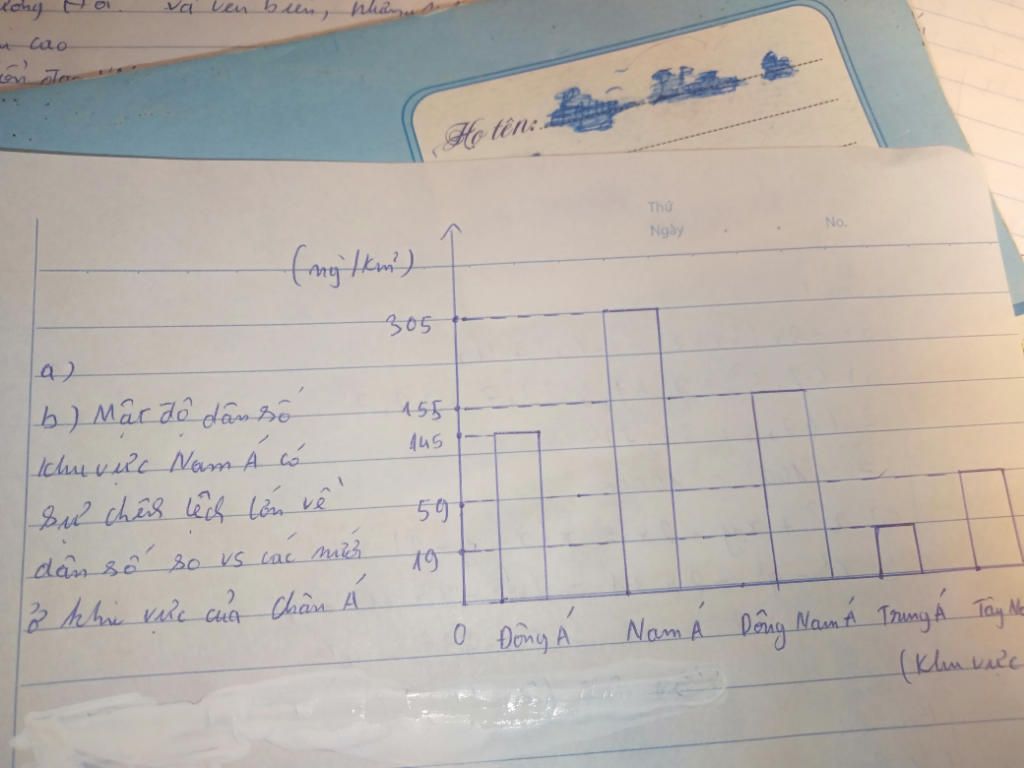 và ven biển,
cao
Họ tên:
Thứ
Ngày
No.
(ng/km²)
305
a)
b) Mật độ dân số
155
145
khu vực Nam Á có
59
sự chênh lệch lớn về
19
dân số so vs các nước
ở khu vực của Châu Á
0 Đông Á Nam Á Đông Nam Á Trung Á Tây Na
(Khu vực